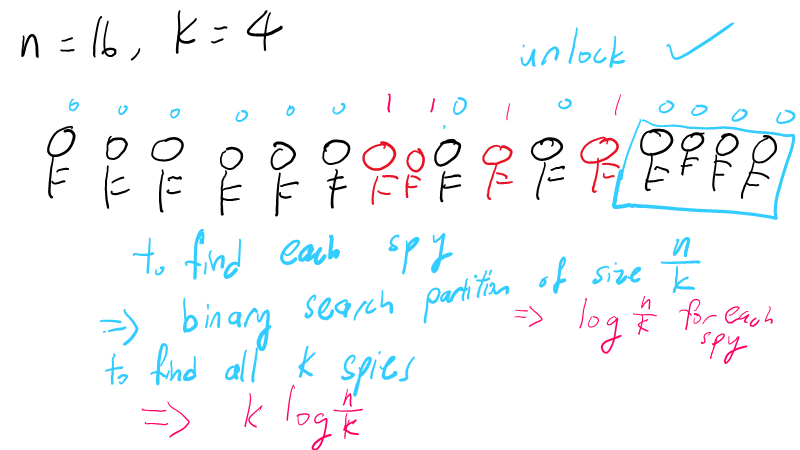 n = 16, k = 4
unlock ✓
0 0 0 0 0 0 1 1 0 1 0 1 0 0 0 0
to find each spy
⇒ binary search partition of size n/k
⇒ log n/k for each spy
to find all k spies
⇒ k log n/k